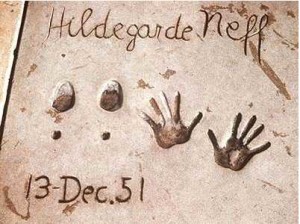 Hildegarde Neff
13-Dec. 51